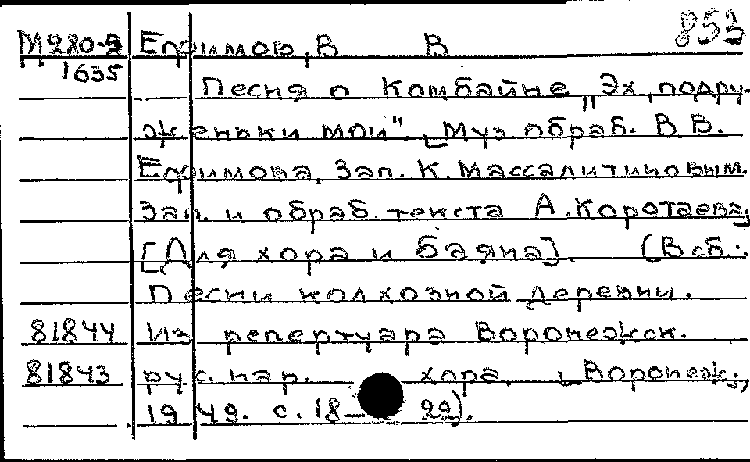 853
М280-3 Ефимов, В В
1635 Песня о Комбайне „Эх, подру-
женьки мои". [Муз обраб. В В.
Ефимова. Зап. К. Массалитиновым.
Зап. и обраб. текста А. Коротаева,
[Для хора и баяна]. (В сб.:
Песни колхозной деревни.
81844 Из репертуара Воронежск.
81843 рус. нар. хора. [Воронеж,
1949. с. 18— 22).